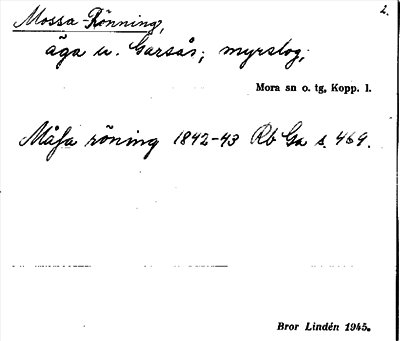 2.
Mossa-Rönning,
äga u. Garsås; myrslog;
Mora sn o. tg, Kopp. l.
Måsa röning 1842-43 Rb Ga s. 469.
Bror Lindén 1945.